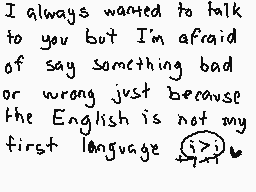 I always wanted to talk
to you but I'm afraid
of say something bad
or wrong just because
the English is not my
first language ;>;